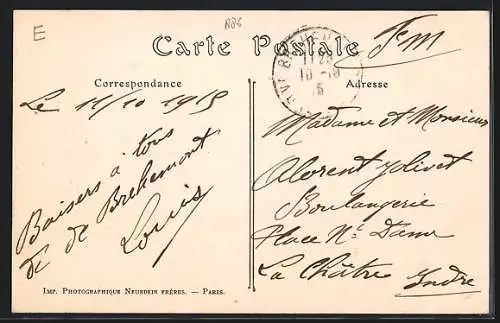 E
R86
Carte Postale
Fm
Correspondance
Adresse
Le 11/10 1915
Baisers à tous
de Brehemont
Louis
Madame et Monsieur
Jolivet
Boulangerie
Place Ne Dame
La Châtre
Indre
Imp. Photographique Neurdein Frères. — Paris.